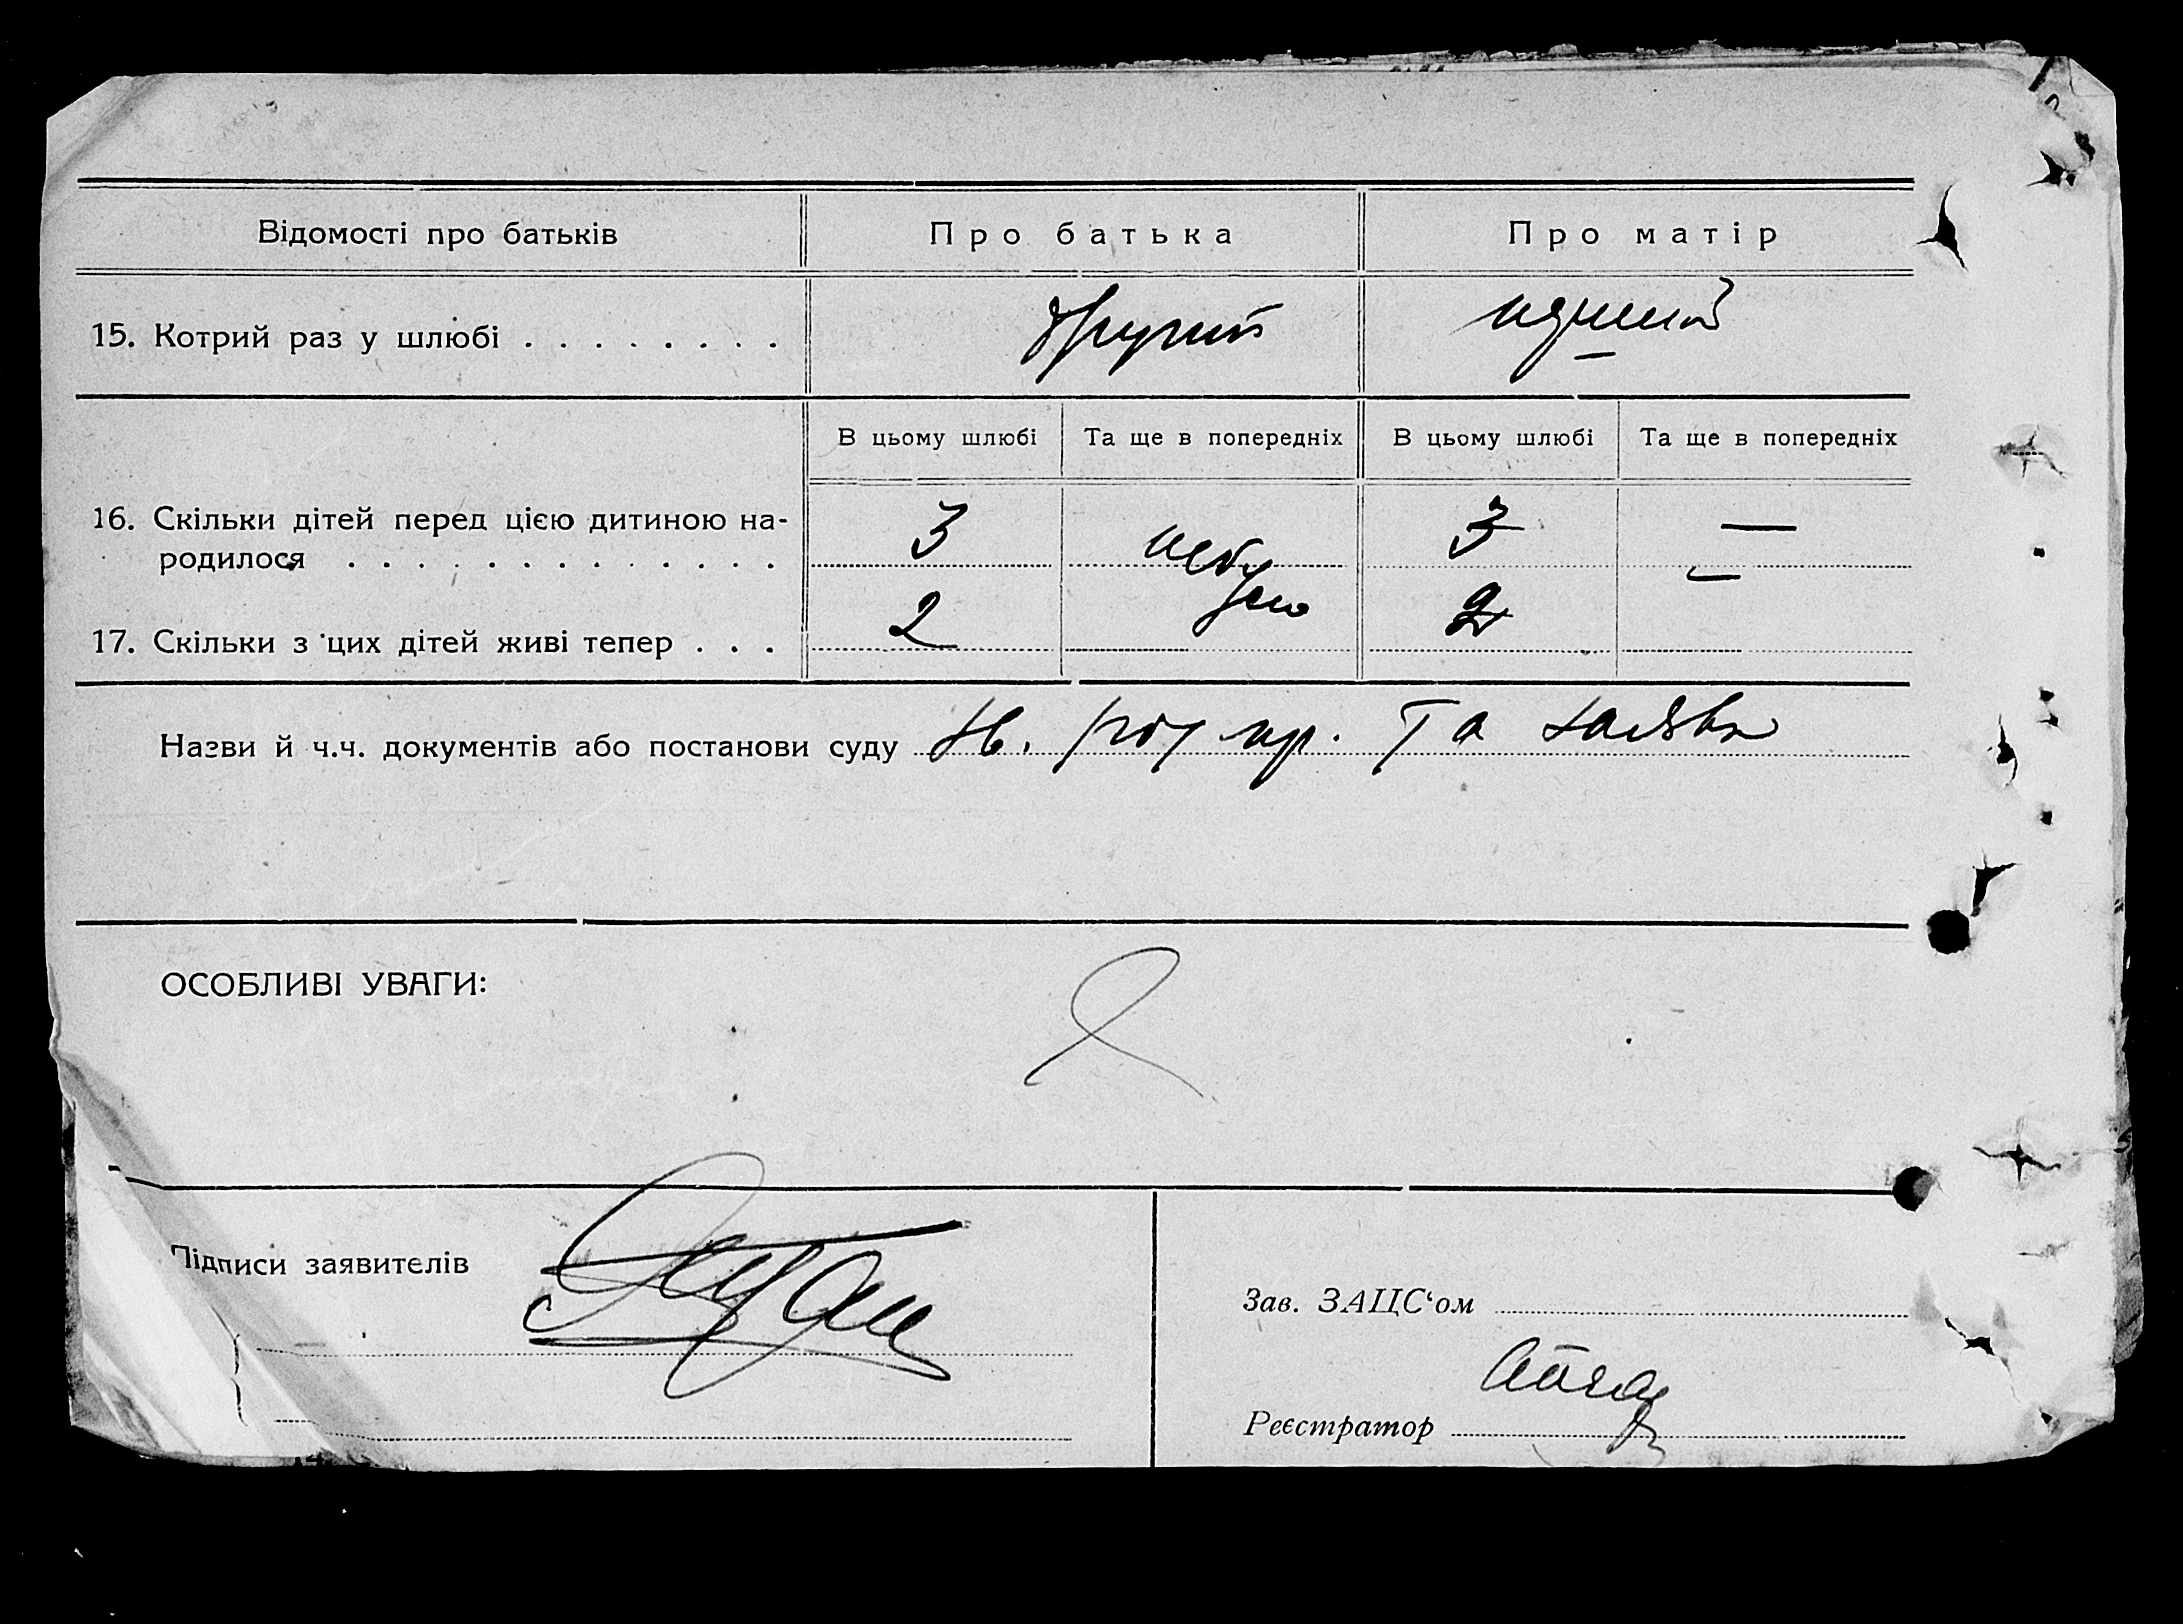 Відомості про батьків Про батька Про матір
15. Котрий раз у шлюбі . . . . . . . . другий перший
В цьому шлюбі Та ще в попередніх В цьому шлюбі Та ще в попередніх
16. Скільки дітей перед цією дитиною на-
родилося . . . . . . . . . . . . . 3 небуло 3 —
17. Скільки з цих дітей живі тепер . . . 2 2 —
Назви й ч.ч. документів або постанови суду пр. Та заява
ОСОБЛИВІ УВАГИ:
Підписи заявителів
Зав. ЗАЦС‘ом
Реєстратор